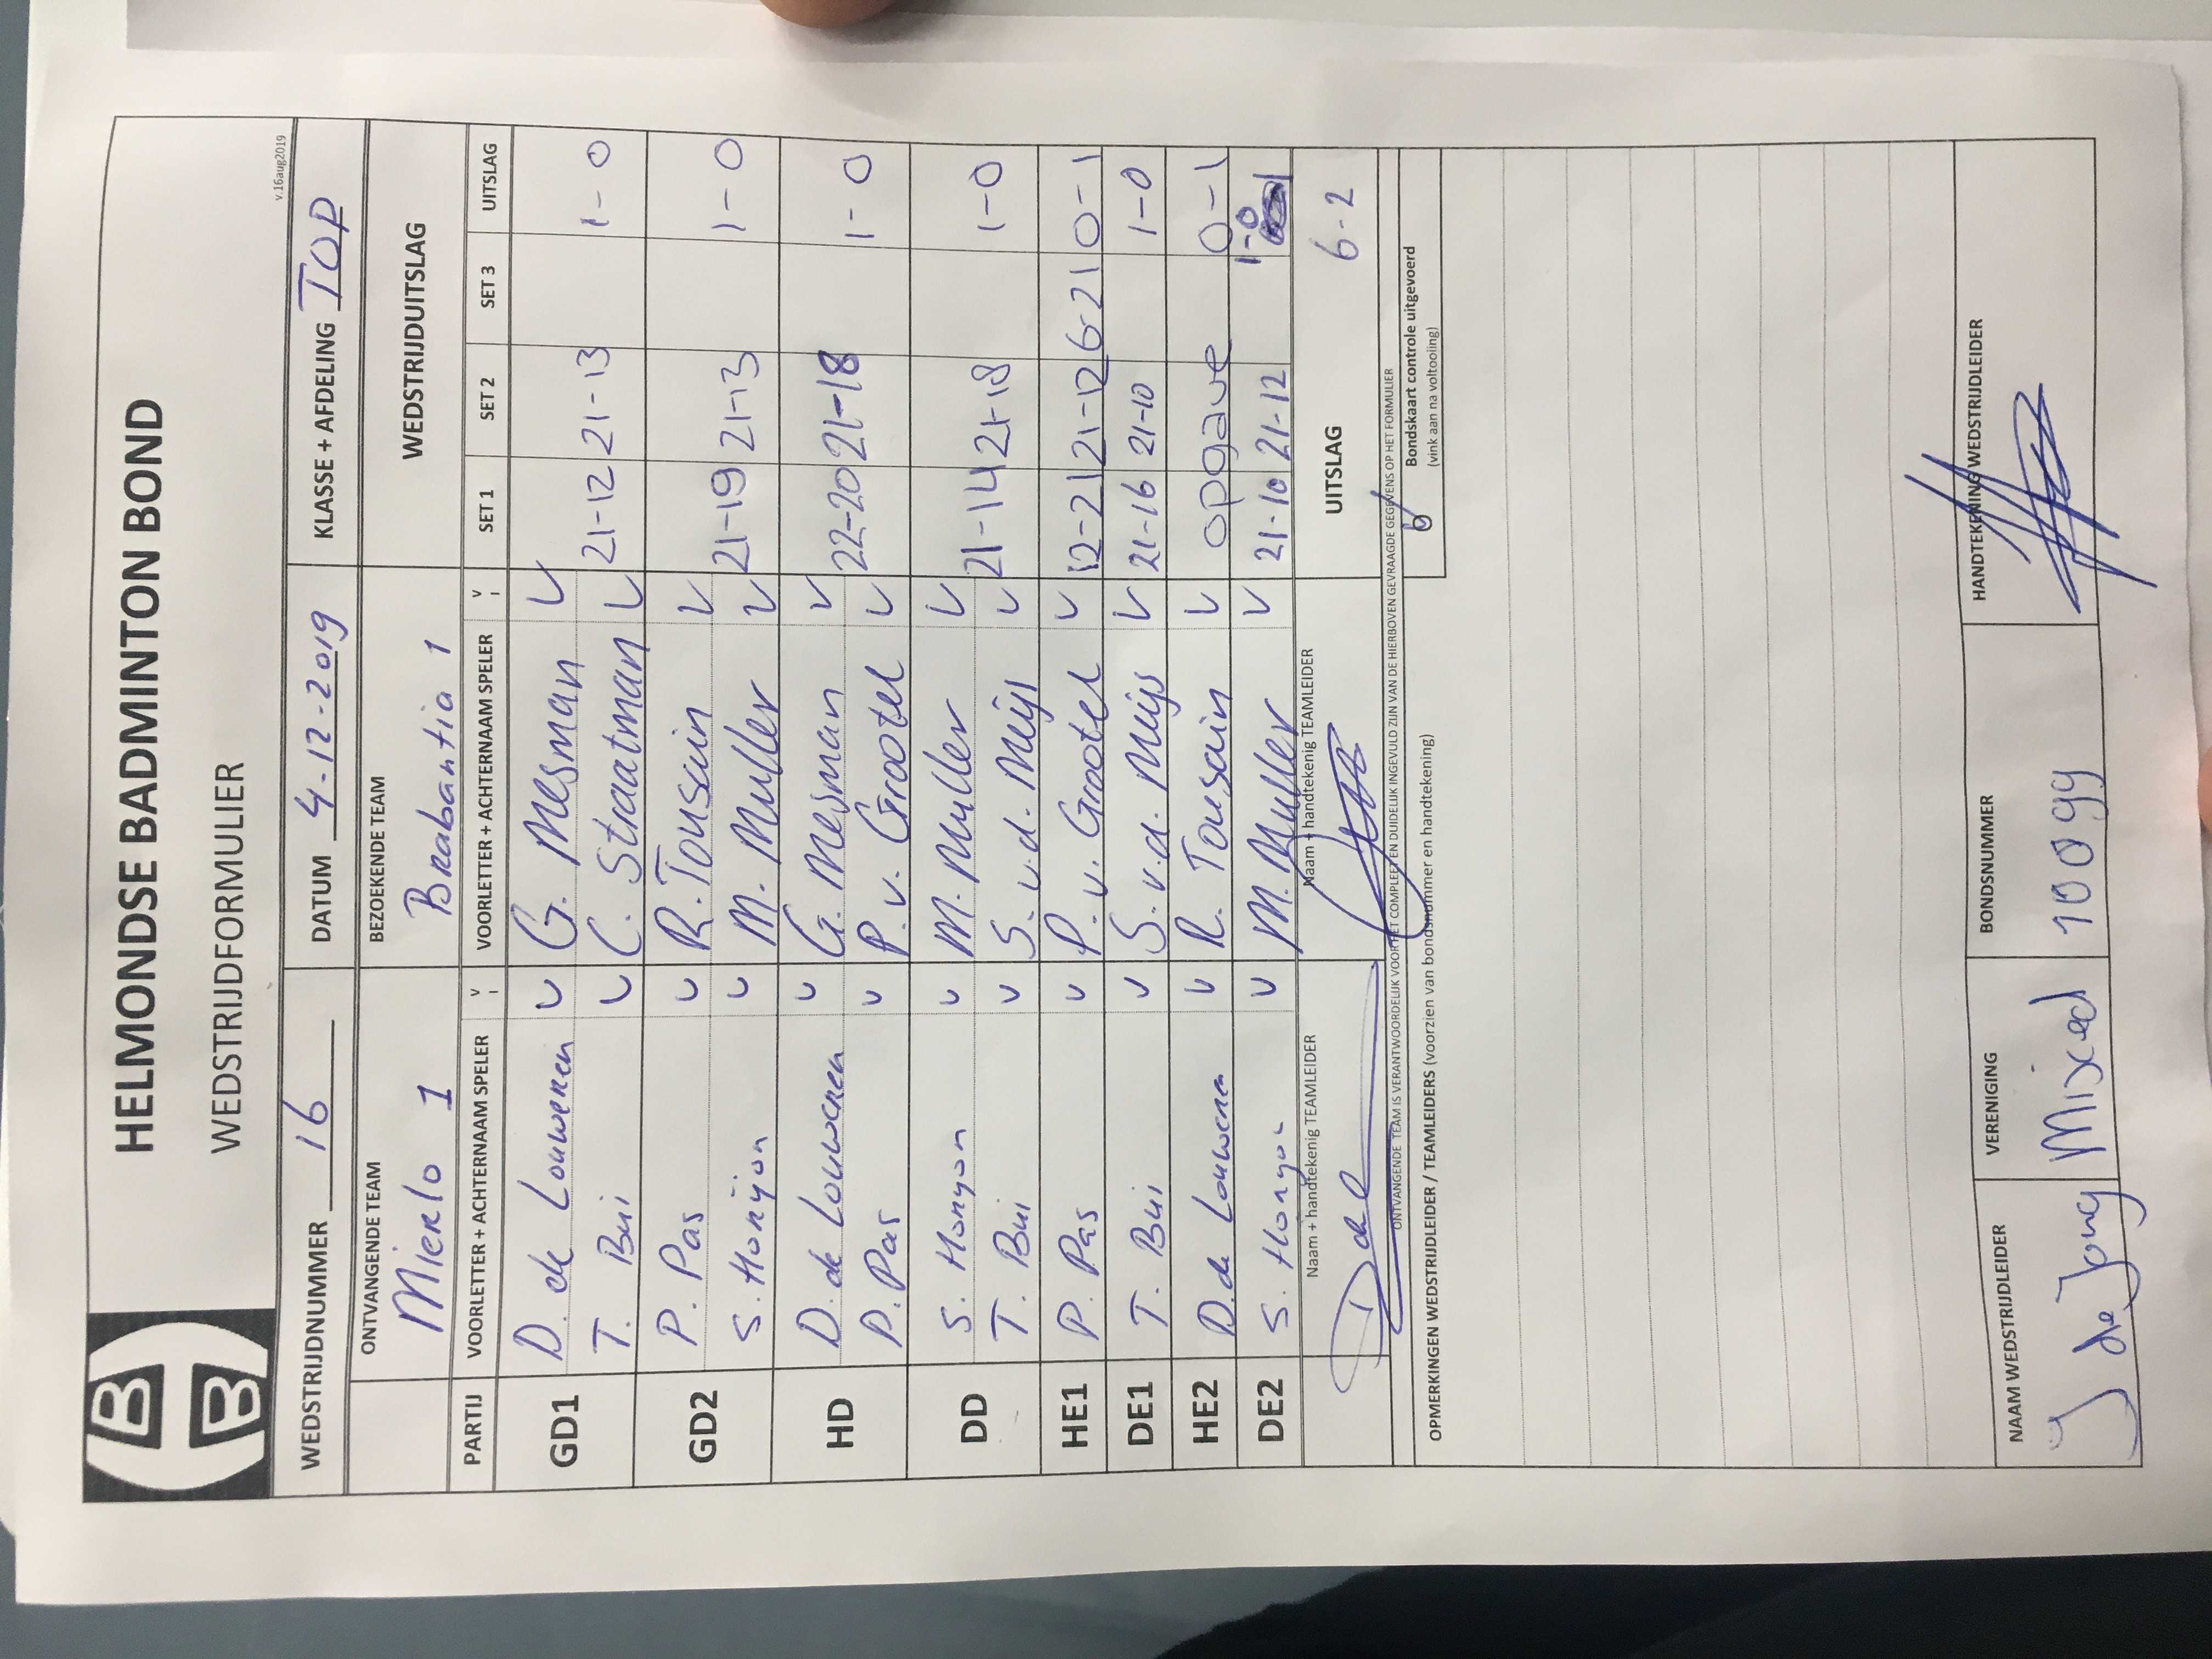 HELMONDSE BADMINTON BOND
WEDSTRIJDFORMULIER
v.16aug2019
WEDSTRIJDNUMMER 16 DATUM 4-12-2019 KLASSE + AFDELING TOP
ONTVANGENDE TEAM BEZOEKENDE TEAM WEDSTRIJDUITSLAG
Mierlo 1 Brabantia 1
PARTIJ VOORLETTER + ACHTERNAAM SPELER V VOORLETTER + ACHTERNAAM SPELER V SET 1 SET 2 SET 3 UITSLAG
GD1 D. de Louweren V G. Mesman V
T. Bui V C. Straatman V 21-12 21-13 1-0
GD2 P. Pas V R. Tousain V
S. Honijon V M. Muller V 21-19 21-13 1-0
HD D. de Louweren V G. Mesman V
P. Pas V P. v. Grootel V 22-20 21-18 1-0
DD S. Honyon V M. Muller V
T. Bui V S. v.d. Meijs V 21-14 21-18 1-0
HE1 P. Pas V P. v. Grootel V 12-21 21-12 6-21 0-1
DE1 T. Bui V S. v.d. Meijs V 21-16 21-10 1-0
HE2 D. de Louweren V R. Tousain V opgave 0-1
DE2 S. Honyon V M. Muller V 21-10 21-12 1-0
Naam + handtekenig TEAMLEIDER Naam + handtekenig TEAMLEIDER UITSLAG 6-2
ONTVANGENDE TEAM IS VERANTWOORDELIJK VOOR HET COMPLEET EN DUIDELIJK INGEVULD ZIJN VAN DE HIERBOVEN GEVRAAGDE GEGEVENS OP HET FORMULIER
Bondskaart controle uitgevoerd
(vink aan na voltooling)
OPMERKINGEN WEDSTRIJDLEIDER / TEAMLEIDERS (voorzien van bondsnummer en handtekening)
NAAM WEDSTRIJDLEIDER VERENIGING BONDSNUMMER HANDTEKENING WEDSTRIJDLEIDER
J de Jong Mixed 10099